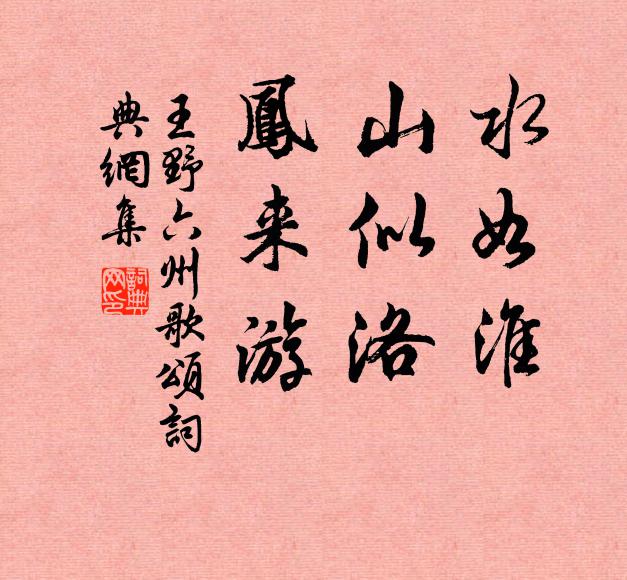 水如淮
山似洛
鳳来游
王野六州歌頌詞
典網集
詞典網印